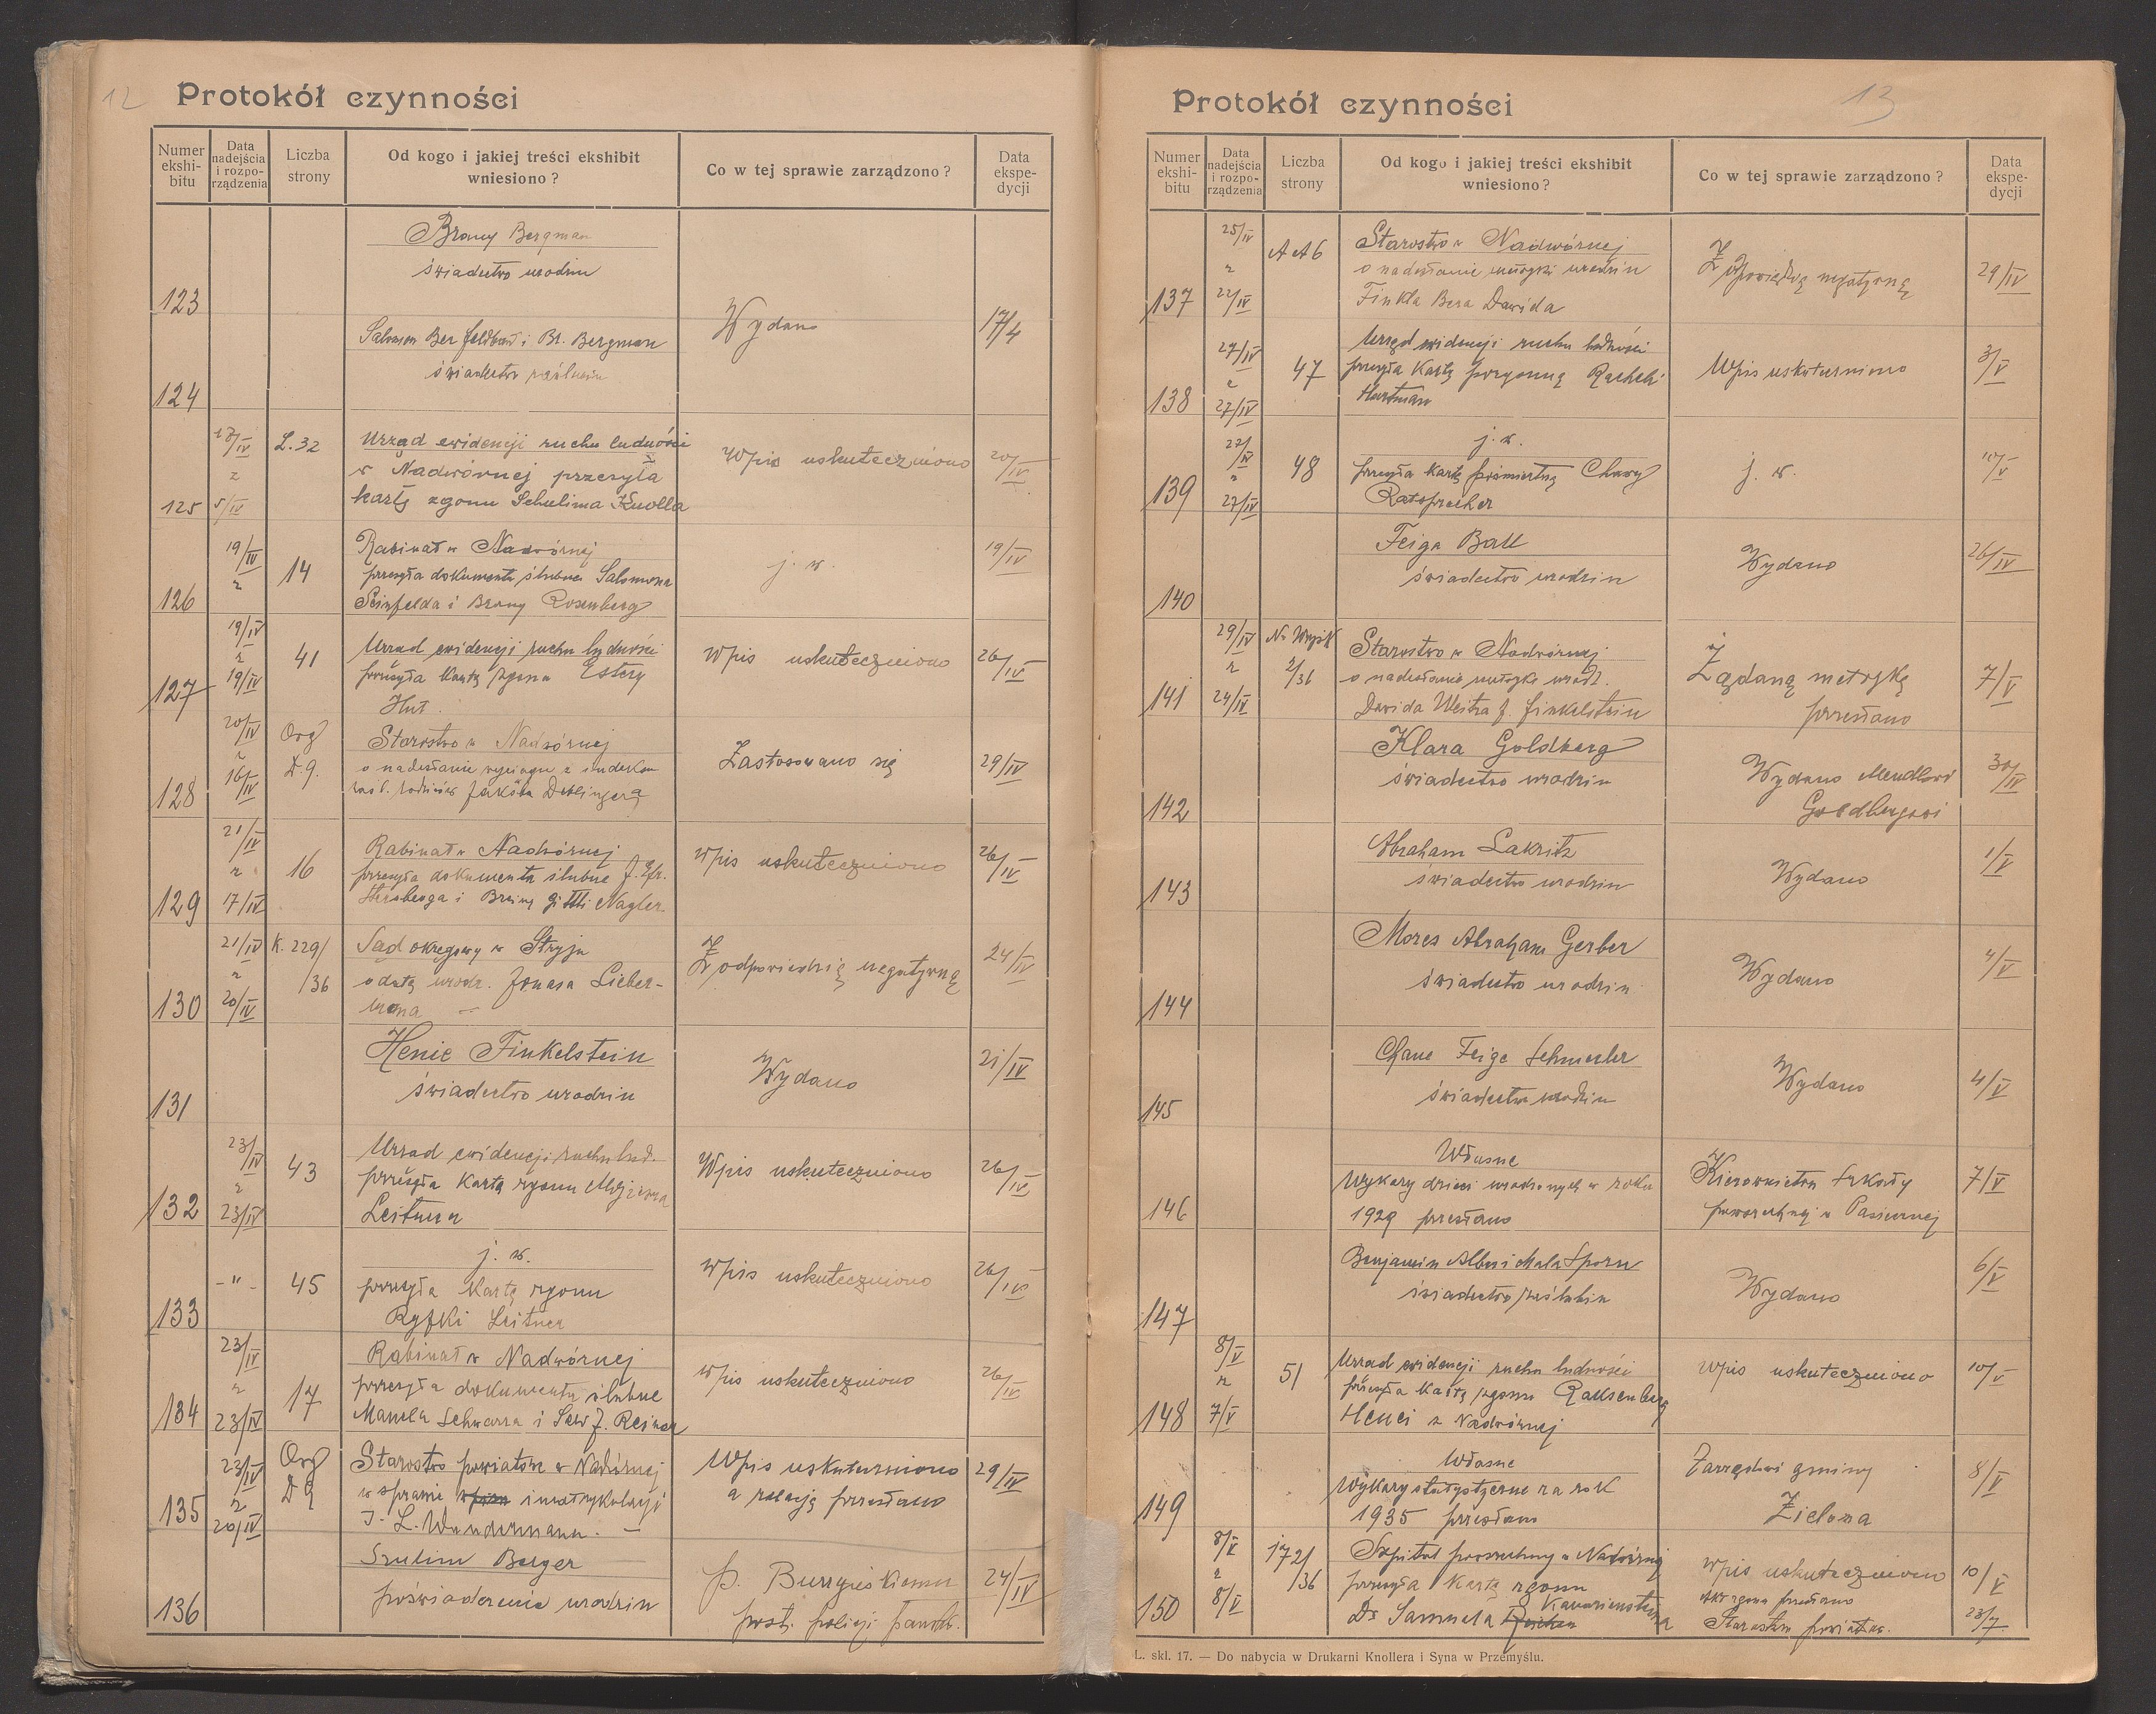 12
Protokół czynności
Numer ekshi-bitu
Data nadejścia i rozpo-rządzenia
Liczba strony
Od kogo i jakiej treści ekshibit wniesiono?
Co w tej sprawie zarządzono?
Data ekspe-dycji
Brany Bergman
świadectwo urodzin
123
Salomon Ber Feldbau i Br. Bergman
Wydano
17/4
świadectwo zaślubin
124
17/IV
L.32
Urząd ewidencji ruchu ludności
w Nadwórnej przesyła
Wpis uskuteczniono
20/IV
kartę zgonu Schulima Knolla
125
5/IV
19/IV
z
14
Rabinat w Nadwórnej
przesyła dokumenta ślubne Salomona
j. w.
19/IV
Seinfelda i Brany Rosenberg
126
19/IV
z
19/IV
41
Urząd ewidencji ruchu ludności
przesyła kartę zgonu Estery
Hut.
Wpis uskuteczniono
26/IV
127
20/IV
z
16/IV
Org
D.9.
Starostwo w Nadwórnej
o nadesłanie wyciągu z indeksu
Zastosowano się
29/IV
zaśl. rodziców Jakóba
128
21/IV
z
17/IV
16
Rabinat w Nadwórnej
przesyła dokumenta ślubne
Wpis uskuteczniono
26/IV
i Brainy Gittli Nagler
129
21/IV
z
20/IV
K. 229/
/36
Sąd okręgowy w Stryju
o datę urodz. Jonasa Lieber-
mana
Z odpowiedzią negatywną
24/IV
130
Henie Finkelstein
świadectwo urodzin
Wydano
21/IV
131
23/IV
z
23/IV
43
Urząd ewidencji ruchu lud.
przesyła kartę zgonu Mojżesza
Leitnera
Wpis uskuteczniono
26/IV
132
- " -
45
j. w.
przesyła kartę zgonu
Ryfki Leitner
Wpis uskuteczniono
26/IV
133
23/IV
z
23/IV
17
Rabinat w Nadwórnej
przesyła dokumenta ślubne
Manela Schwarza i
Wpis uskuteczniono
26/IV
134
23/IV
z
20/IV
Org
D 9
Starostwo powiatowe w Nadwórnej
w sprawie imatrykulacji
J. L. Wundermann. —
Wpis uskuteczniono
a relację przesłano
29/IV
135
Szulim Berger
poświadczenie urodzin
P.
post. policji państw.
24/IV
136
13
Protokół czynności
Numer ekshi-bitu
Data nadejścia i rozpo-rządzenia
Liczba strony
Od kogo i jakiej treści ekshibit wniesiono?
Co w tej sprawie zarządzono?
Data ekspe-dycji
25/IV
z
22/IV
A A 6
Starostwo w Nadwórnej
o nadesłanie metryki urodzin
Finkla Bera Dawida
Z odpowiedzią negatywną
29/IV
137
27/IV
z
27/IV
47
Urząd ewidencji ruchu ludności
przesyła kartę pozgonną Racheli
Hartman
Wpis uskuteczniono
3/V
138
27/IV
z
27/IV
48
j. w.
przesyła kartę pośmiertną Chawy
Ratsprecher
j. w.
10/V
139
Feiga Ball
świadectwo urodzin
Wydano
26/IV
140
29/IV
z
24/IV
2/36
Starostwo w Nadwórnej
o nadesłanie metryki urodz.
Dawida f. Finkelstein
Żądaną metrykę
przesłano
7/V
141
Klara Goldberg
świadectwo urodzin
Wydano Mendlowi
Goldbergowi
30/IV
142
Abraham Lakritz
świadectwo urodzin
Wydano
1/V
143
Mozes Abraham Gerber
świadectwo urodzin
Wydano
4/V
144
Chane Feige Schmerler
świadectwo urodzin
Wydano
4/V
145
Własne
Wykazy dzieci urodzonych w roku
1929 przesłano
Kierownictwu Szkoły
powszechnej w Pasiecznej
7/V
146
Benjamin Alber i Mala Sporn
świadectwo zaślubin
Wydano
6/V
147
8/V
z
7/V
51
Urząd ewidencji ruchu ludności
przesyła kartę zgonu
Henci z Nadwórnej
Wpis uskuteczniono
10/V
148
Własne
Wykazy statystyczne za rok
1935 przesłano
Zarządowi gminy
Zielona
8/V
149
8/V
z
8/V
172/
/36
Szpital powszechny w Nadwórnej
przesyła kartę zgonu
Dr Samuela Kanariensteina
Wpis uskuteczniono
10/V
Akt zgonu przesłano
Starostwu powiatow.
23/7
150
L. skł. 17. — Do nabycia w Drukarni Knollera i Syna w Przemyślu.